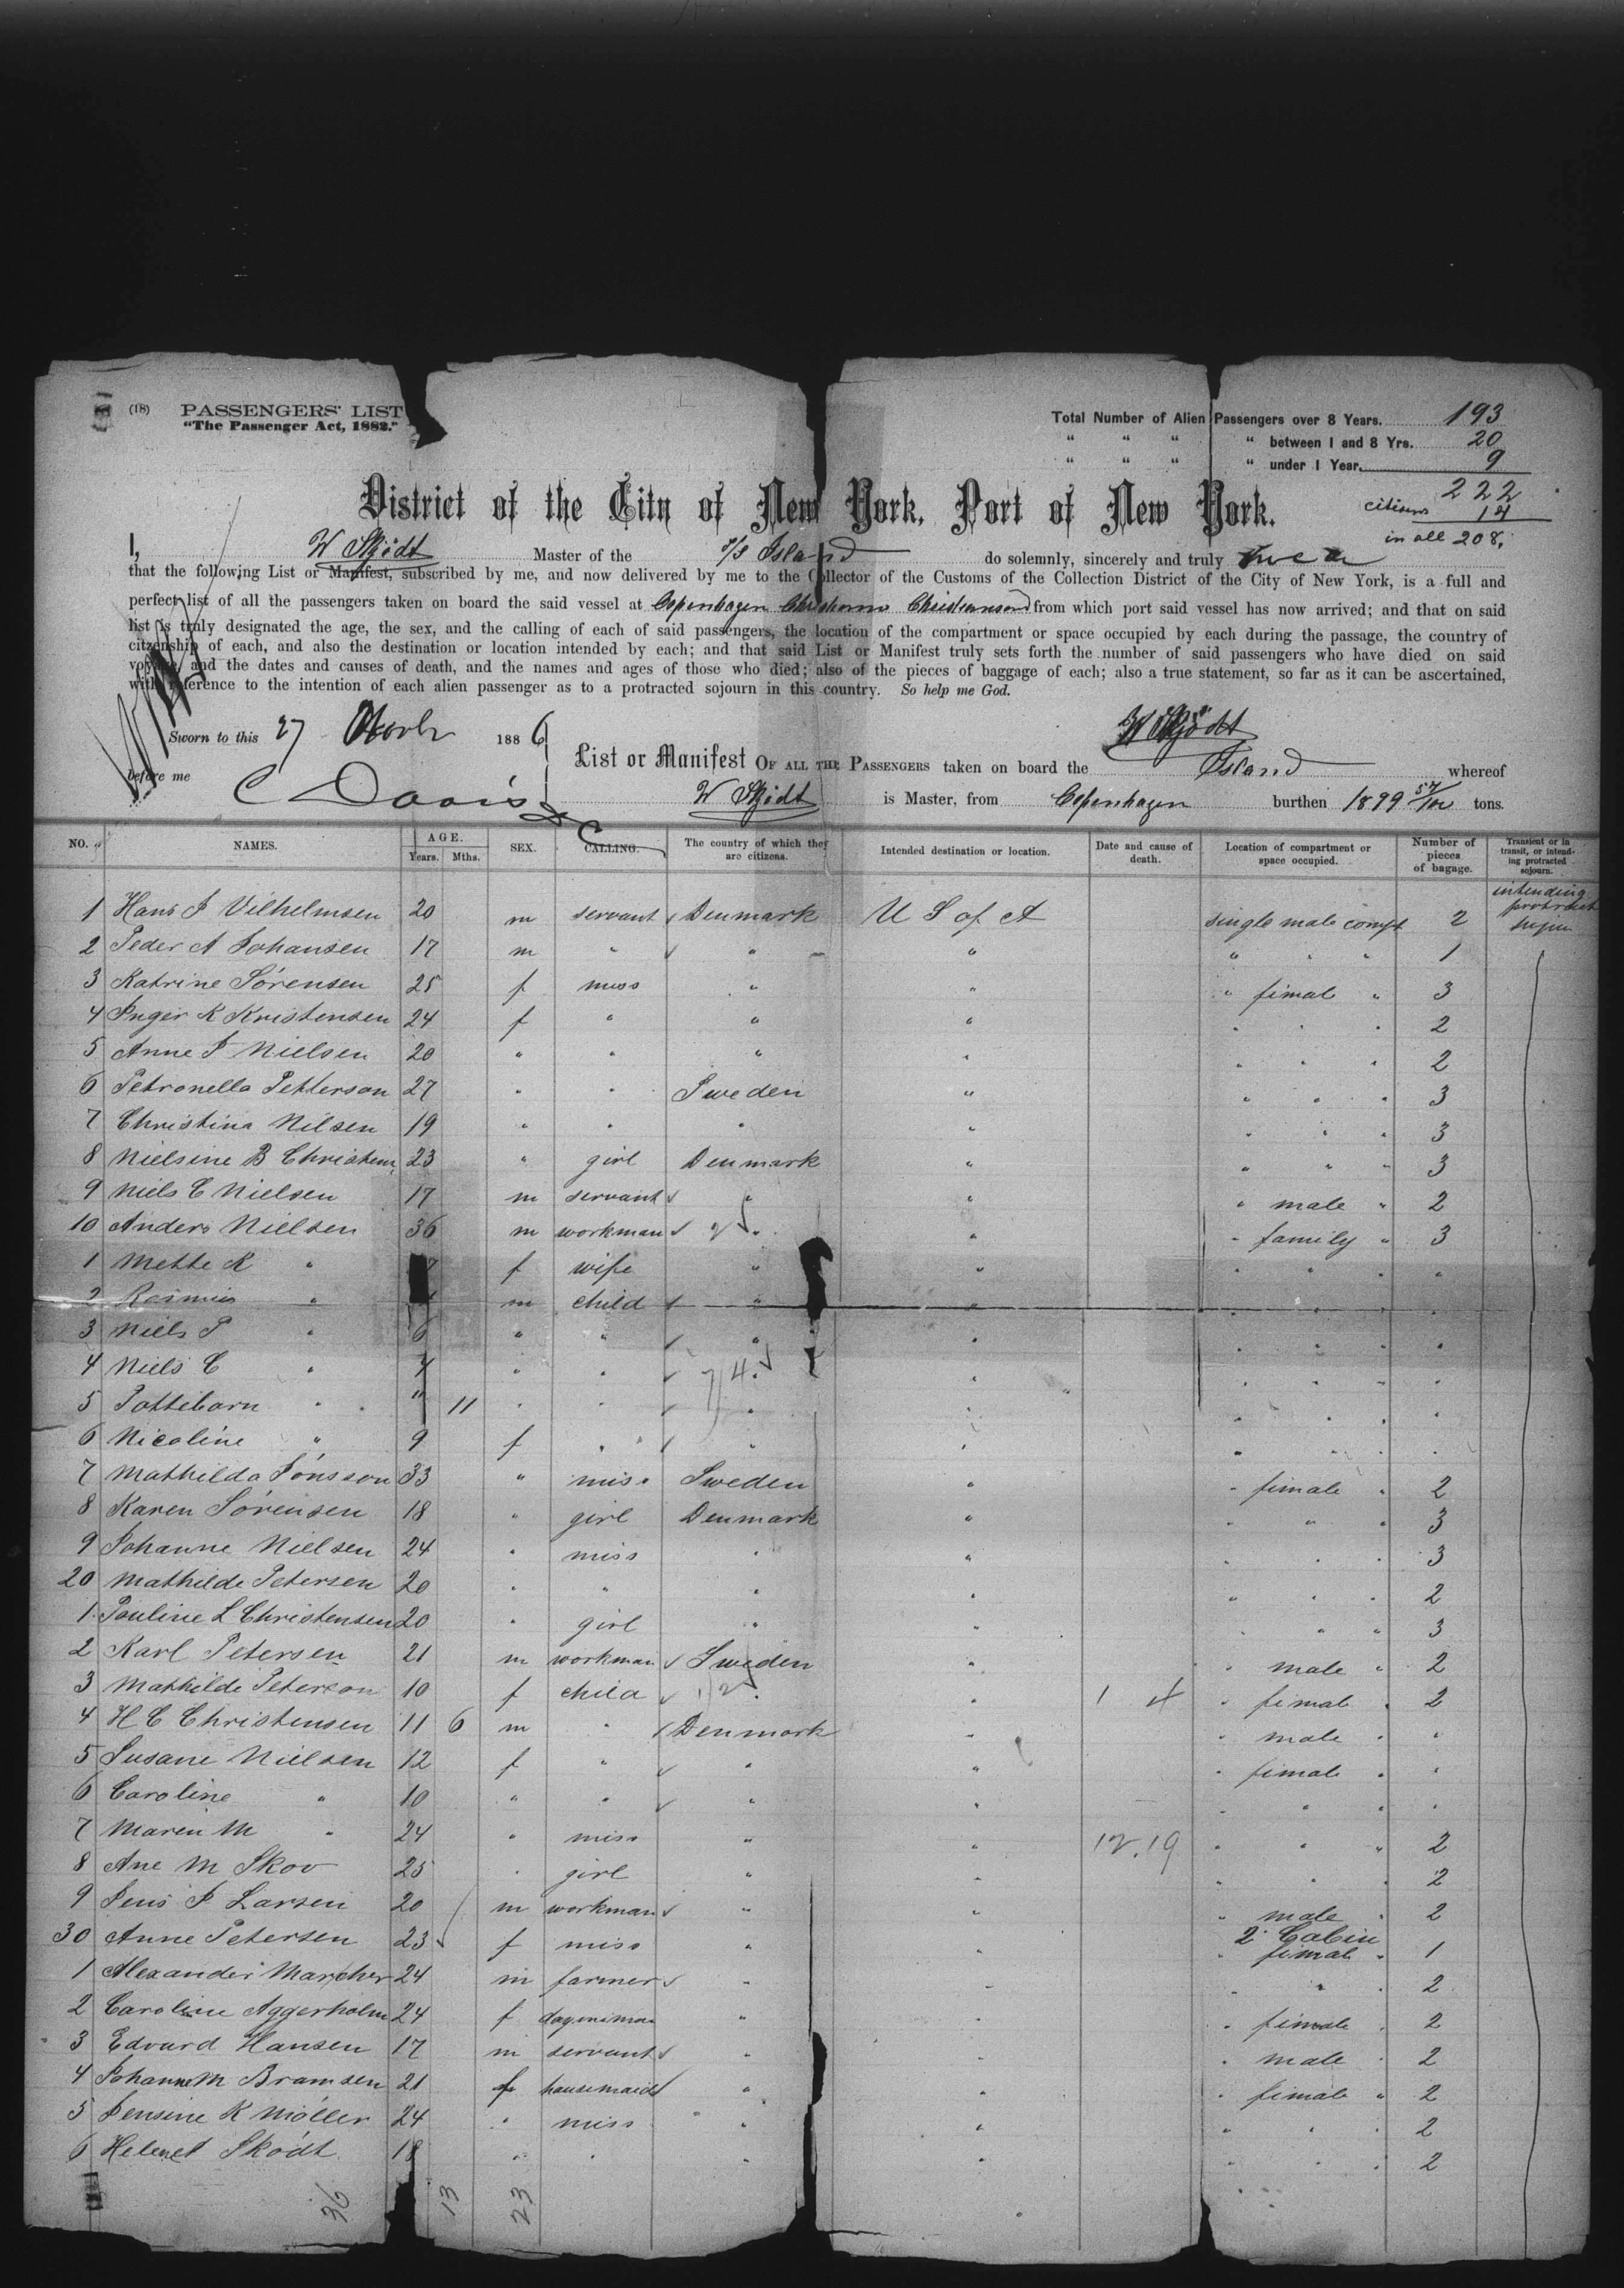 (18) PASSENGERS' LIST
"The Passenger Act, 1882."
Total Number of Alien Passengers over 8 Years. 193
" " " " between 1 and 8 Yrs. 20
" " " " under 1 Year. 9
222
citizens 14
in all 208.
District of the City of New York, Port of New York.
I, W Skjödt Master of the S/S Island do solemnly, sincerely and truly swear
that the following List or Manifest, subscribed by me, and now delivered by me to the Collector of the Customs of the Collection District of the City of New York, is a full and
perfect list of all the passengers taken on board the said vessel at Copenhagen Christiansand from which port said vessel has now arrived; and that on said
list is truly designated the age, the sex, and the calling of each of said passengers, the location of the compartment or space occupied by each during the passage, the country of
citzenship of each, and also the destination or location intended by each; and that said List or Manifest truly sets forth the number of said passengers who have died on said
voyage, and the dates and causes of death, and the names and ages of those who died; also of the pieces of baggage of each; also a true statement, so far as it can be ascertained,
with reference to the intention of each alien passenger as to a protracted sojourn in this country. So help me God.
W Skjödt
Sworn to this 27 1886
before me C Davis
List or Manifest OF ALL THE PASSENGERS taken on board the Island whereof
W Skjödt is Master, from Copenhagen burthen 1899 57/100 tons.
NO. NAMES. AGE. Years. Mths. SEX. CALLING. The country of which they are citizens. Intended destination or location. Date and cause of death. Location of compartment or space occupied. Number of pieces of bagage. Transient or in transit, or intending protracted sojourn.
1 Hans J Vilhelmsen 20 m servant Denmark U S of A single male compt 2 intending protract
2 Peder A Johansen 17 m " " " " " " 1
3 Katrine Sörensen 25 f miss " " " fimale " 3
4 Inger K Kristensen 24 f " " " " " " 2
5 Anne J Nielsen 20 " " " " " " " 2
6 Petronella Petterson 27 " " Sweden " " " " 3
7 Christina Nilsen 19 " " " " " " " 3
8 Nielsine B Christens 23 " girl Denmark " " " " 3
9 Niels C Nielsen 17 m servant " " " male " 2
10 Anders Nielsen 36 m workman " " " family " 3
1 Mette K " 7 f wife " " " " " "
2 Rasmus " m child " " " " " "
3 Niels P " 6 " " " " " " " "
4 Niels C " 4 " " " " " " " "
5 Pottebarn " " 11 " " " " " " " "
6 Nicoline " 9 f " " " " " " "
7 Mathilda Jönsson 33 " miss Sweden " " fimale " 2
8 Karen Sörensen 18 " girl Denmark " " " " 3
9 Johanne Nielsen 24 " miss " " " " " 3
20 Mathilde Petersen 20 " " " " " " " 2
1 Pouline L Christensen 20 " girl " " " " " 3
2 Karl Petersen 21 m workman Sweden " " male " 2
3 Mathilde Peterson 10 f child " " " fimale " 2
4 H C Christensen 11 6 m " Denmark " " male " "
5 Susane Nielsen 12 f " " " " fimale " "
6 Caroline " 10 " " " " " " " "
7 Maren M " 24 " miss " " 12.19 " " " 2
8 Ane M Skov 25 " girl " " " " " 2
9 Jens J Larsen 20 m workman " " " male " 2
30 Anne Petersen 23 f miss " " 2. Cabin " fimale " 1
1 Alexander Marcher 24 m farmer " " " " " 2
2 Caroline Aggerholm 24 f " " " fimale " 2
3 Edvard Hansen 17 m servant " " " male " 2
4 Johanne M Bramsen 21 f housemaid " " " fimale " 2
5 Jensine K Möller 24 " miss " " " " " 2
6 Sködt 18 " " " " " " " 2
36 13 23